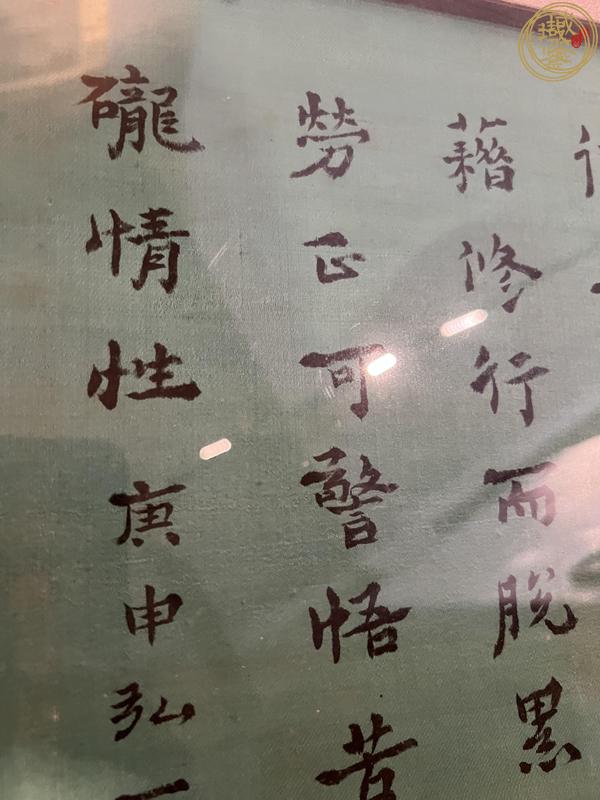 藉修行而脫累
勞正可警悟昔
礲情性庚申弘一